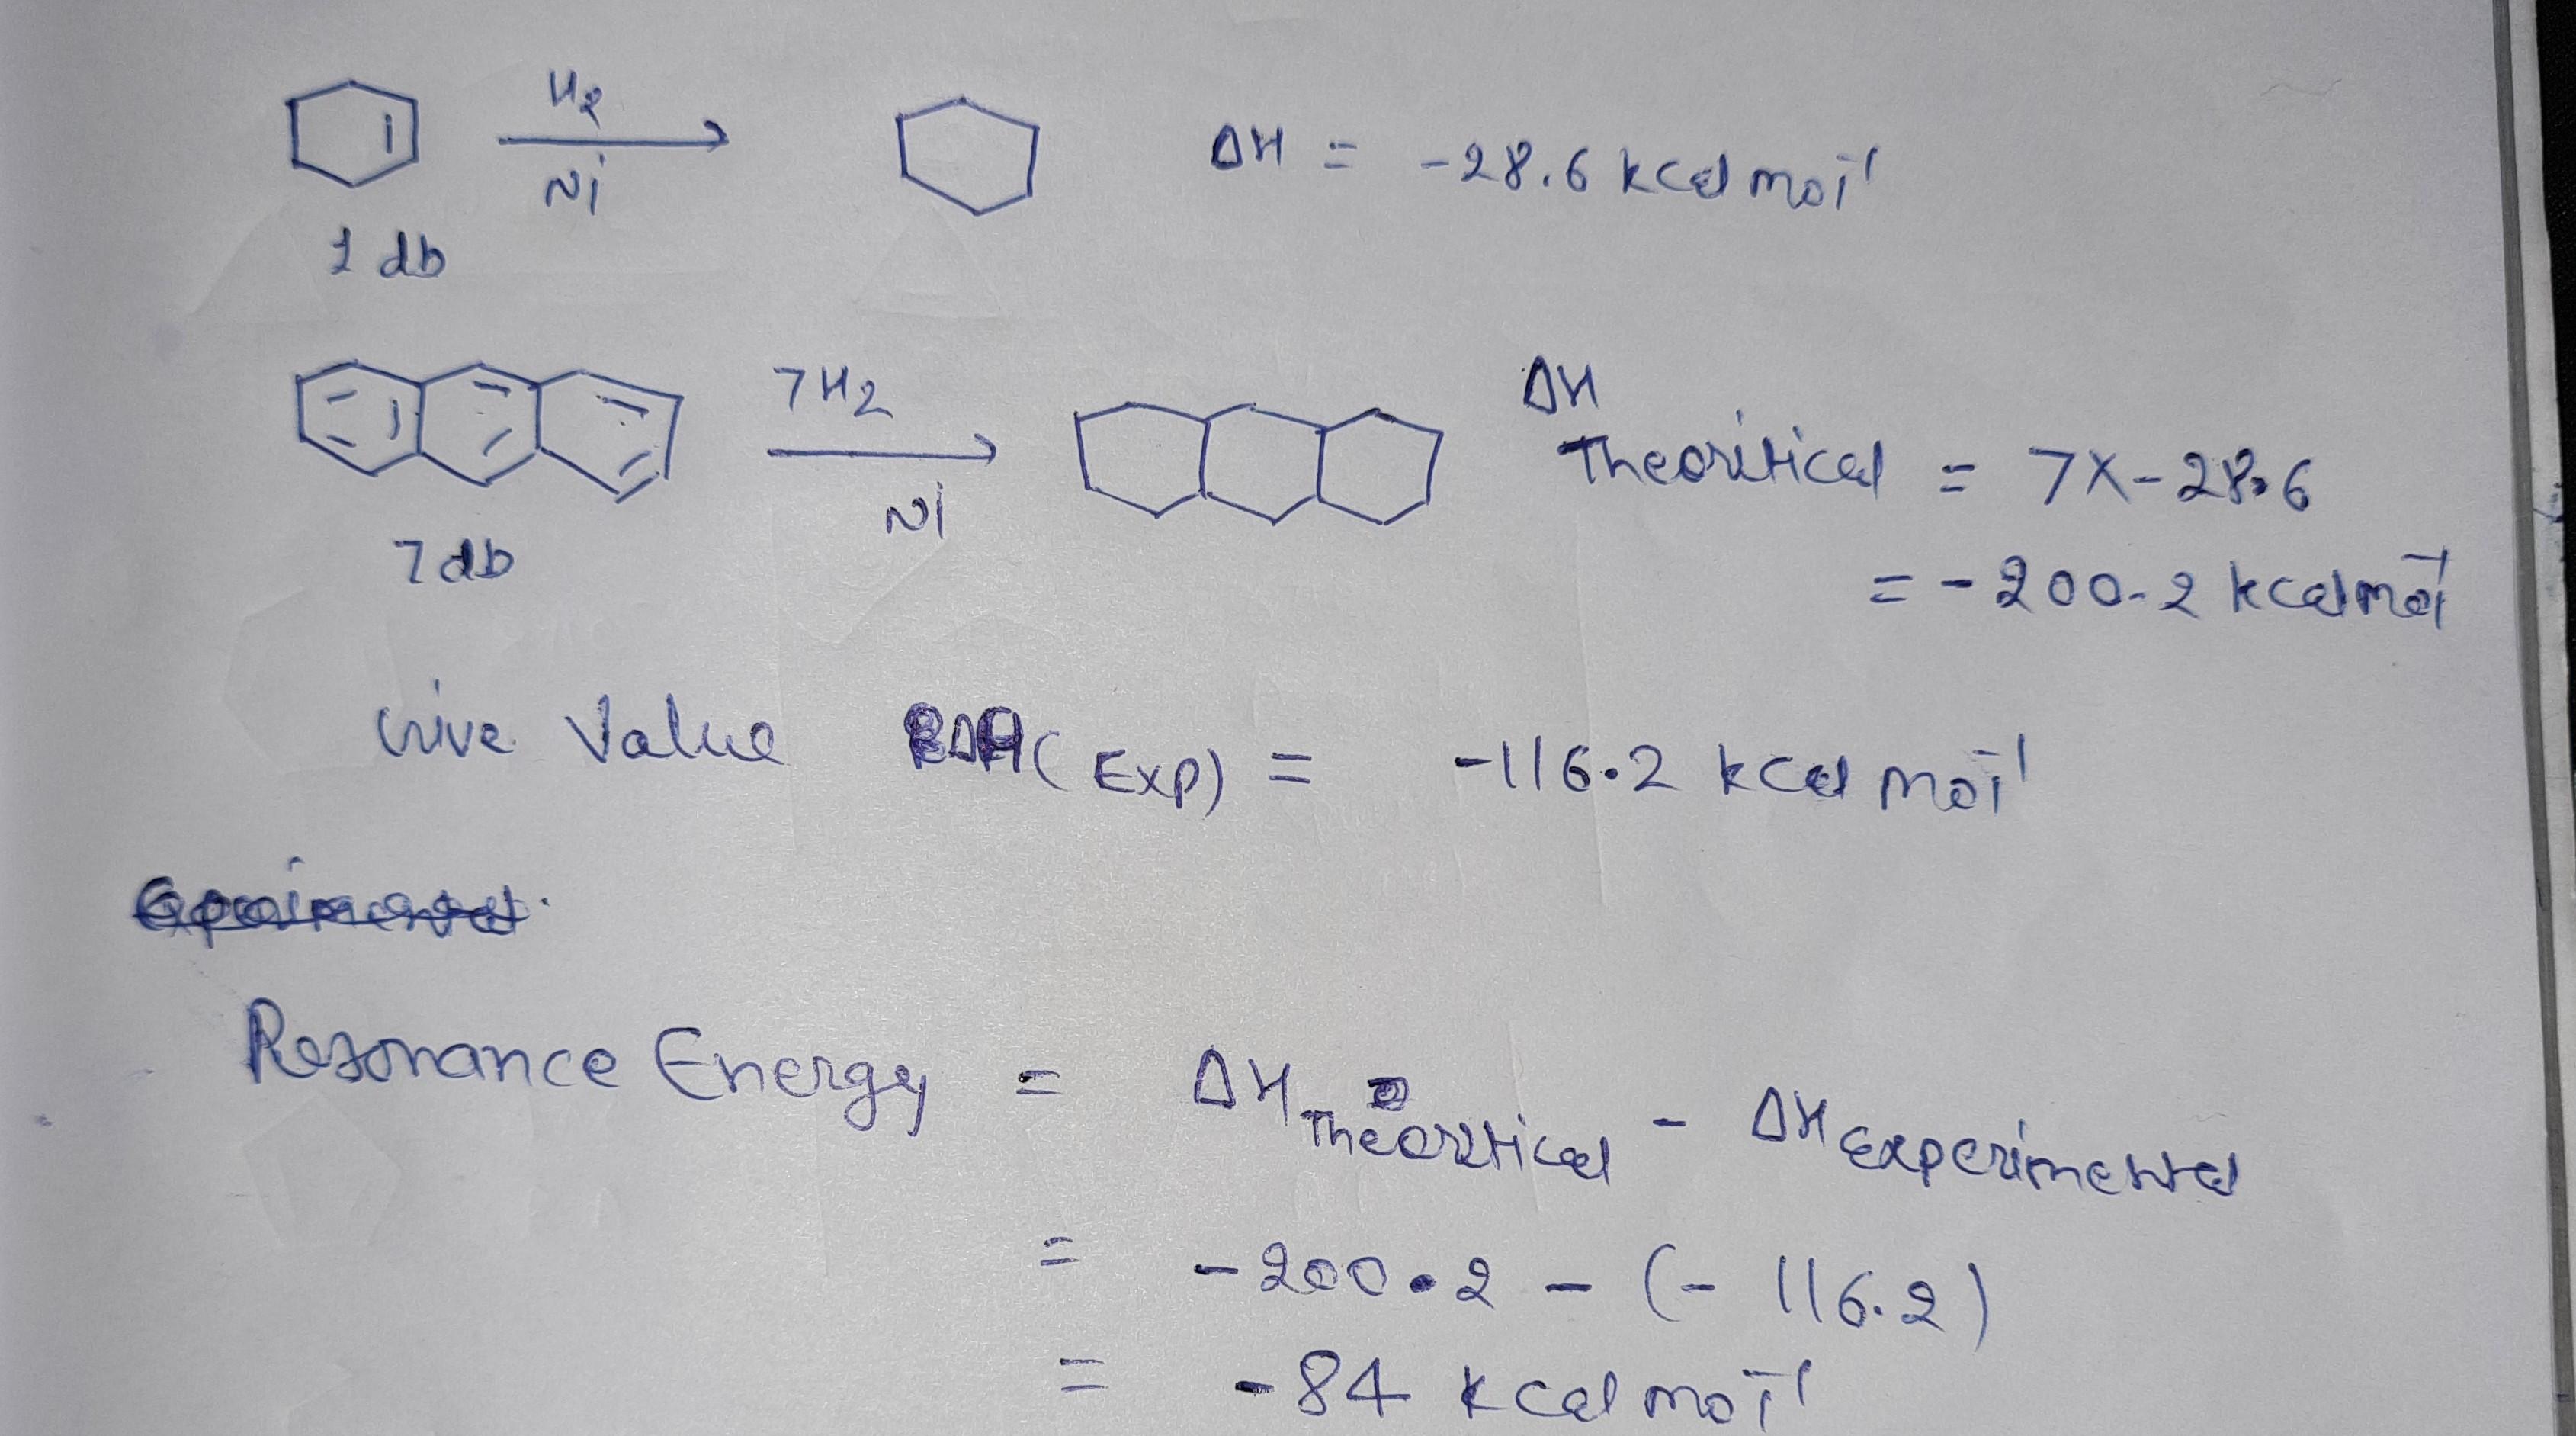 H2
Ni
ΔH = -28.6 kcal mol⁻¹
1 db
7H2
Ni
ΔH Theoritical = 7x-28.6
7 db
= -200.2 kcal mol⁻¹
Give Value ΔH(Exp) = -116.2 kcal mol⁻¹
Resonance Energy = ΔH Theoritical - ΔH Experimental
= -200.2 - (-116.2)
= -84 kcal mol⁻¹